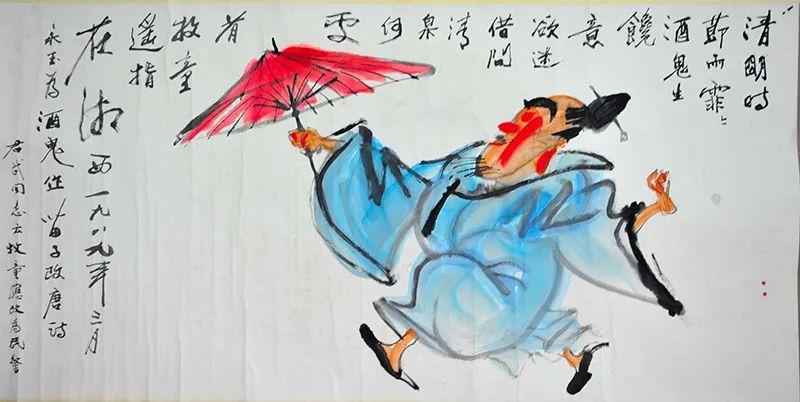 清明时
節雨霏々
酒鬼生
饞
意
欲迷
借問
清
泉
何
處
有
牧童
遥指
在湘西一九八九年三月
永玉為酒鬼作 苗子改唐詩
君武同志云牧童應改為民警